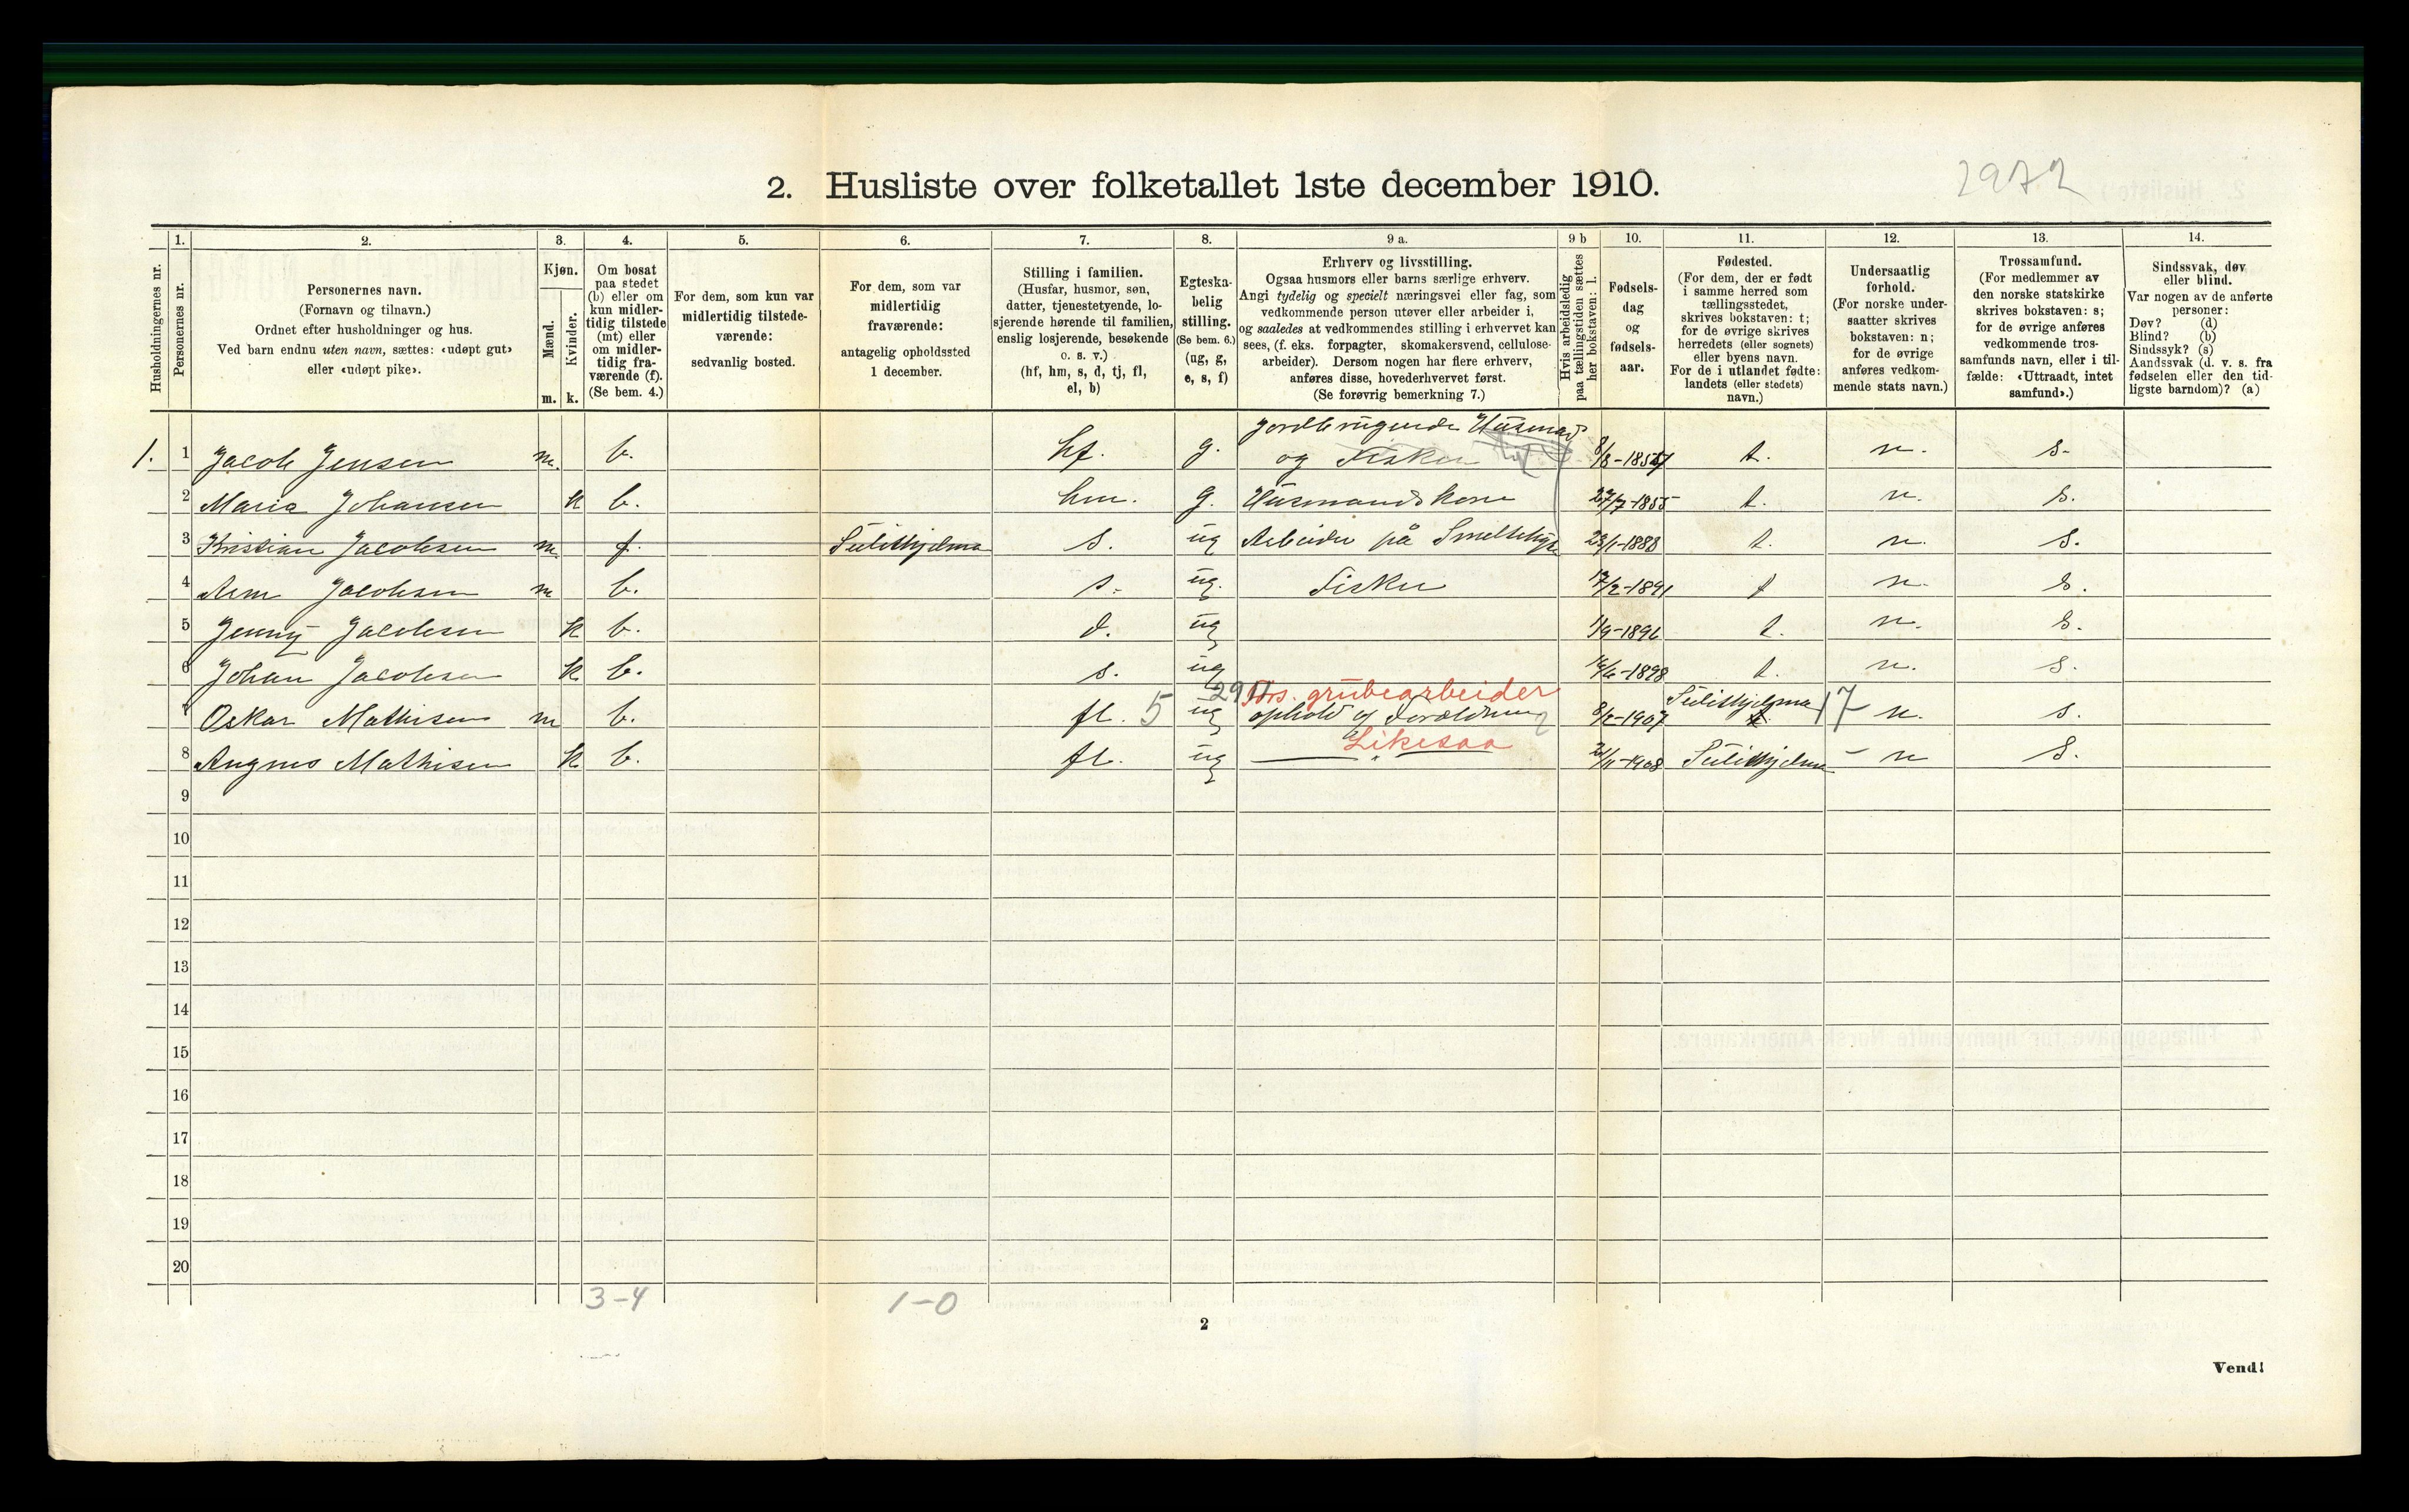 2. Husliste over folketallet 1ste december 1910.
2972
Husholdningernes nr.
1. Personernes nr.
2. Personernes navn.
(Fornavn og tilnavn.)
Ordnet efter husholdninger og hus.
Ved barn endnu uten navn, sættes: «udøpt gut»
eller «udøpt pike».
3. Kjøn.
Mænd. m.
Kvinder. k.
4. Om bosat
paa stedet
(b) eller om
kun midler-
tidig tilstede
(mt) eller
om midler-
tidig fra-
værende (f).
(Se bem. 4.)
5. For dem, som kun var
midlertidig tilstede-
værende:
sedvanlig bosted.
6. For dem, som var
midlertidig
fraværende:
antagelig opholdssted
1 december.
7. Stilling i familien.
(Husfar, husmor, søn,
datter, tjenestetyende, lo-
sjerende hørende til familien,
enslig losjerende, besøkende
o. s. v.)
(hf, hm, s, d, tj, fl,
el, b)
8. Egteska-
belig
stilling.
(Se bem. 6.)
(ug, g,
e, s, f)
9 a. Erhverv og livsstilling.
Ogsaa husmors eller barns særlige erhverv.
Angi tydelig og specielt næringsvei eller fag, som
vedkommende person utøver eller arbeider i,
og saaledes at vedkommendes stilling i erhvervet kan
sees, (f. eks. forpagter, skomakersvend, cellulose-
arbeider). Dersom nogen har flere erhverv,
anføres disse, hovederhvervet først.
(Se forøvrig bemerkning 7.)
9 b Hvis arbeidsledig
paa tællingstiden sættes
her bokstaven: l.
10. Fødsels-
dag
og
fødsels-
aar.
11. Fødested.
(For dem, der er født
i samme herred som
tællingsstedet,
skrives bokstaven: t;
for de øvrige skrives
herredets (eller sognets)
eller byens navn.
For de i utlandet fødte:
landets (eller stedets)
navn.)
12. Undersaatlig
forhold.
(For norske under-
saatter skrives
bokstaven: n;
for de øvrige
anføres vedkom-
mende stats navn.)
13. Trossamfund.
(For medlemmer av
den norske statskirke
skrives bokstaven: s;
for de øvrige anføres
vedkommende tros-
samfunds navn, eller i til-
fælde: «Uttraadt, intet
samfund».)
14. Sindssvak, døv
eller blind.
Var nogen av de anførte
personer:
Døv? (d)
Blind? (b)
Sindssyk? (s)
Aandssvak (d. v. s. fra
fødselen eller den tid-
ligste barndom)? (a)
Jordbrugende Husmand
1. 1 Jacob Jensen m. b. hf. g. og Fisker 8/8-1857 t. n. s.
2 Maria Johansen k b. hm. g. Husmandskone 27/7-1855 t. n. s.
3 Kristian Jacobsen m. f. Sulithjelma s. ug Arbeider på Smeltehytte 23/1-1888 t. n. s.
4 Arne Jacobsen m b. s. ug. Fisker 17/2-1891 t n. s.
5 Jenny Jacobsen k b. d. ug 1/9-1896 t. n. s.
6 Johan Jacobsen k b. s. ug 16/6-1898 t. n. s.
Fors. grubearbeider Sulithjelma
7 Oskar Mathisen m b. fl. 5 ug ophold af Forældrene 8/2-1907 t. 17 n. s.
Likesaa
8 Augnes Mathisen k b. fl. ug — " — 21/11-1908 Sulithjelma - n s.
9
10
11
12
13
14
15
16
17
18
19
20
3-4 1-0
2
Vend!